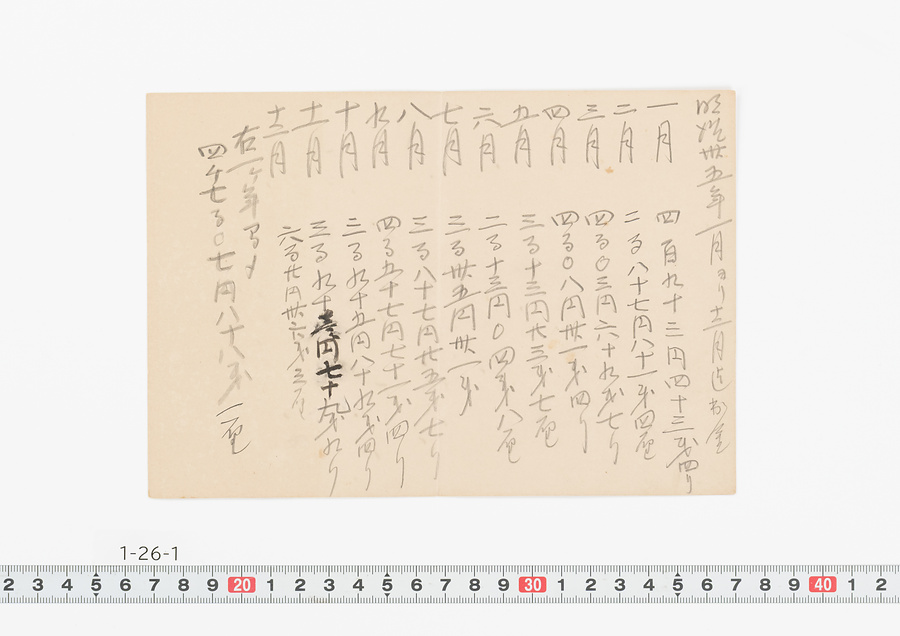 明治卅五年一月ヨリ十二月迄出金
一月 四百九十三円四十三銭四り
二月 二百八十七円八十一銭四厘
三月 四百〇三円六十九銭七り
四月 四百〇八円卅一銭四り
五月 三百十三円廿三銭七厘
六月 二百十三円〇四銭八厘
七月 三百卅五円卅一銭
八月 三百八十七円廿五銭七り
九月 四百五十七円七十一銭四り
十月 三百九十五円八十九銭四り
十一月 三百九十壱円七十九銭九り
十二月 六百廿円卅六銭三厘
右一ヶ年間〆
四千七百〇七円八十八銭一厘
1-26-1
2 3 4 5 6 7 8 9 20 1 2 3 4 5 6 7 8 9 30 1 2 3 4 5 6 7 8 9 40 1 2